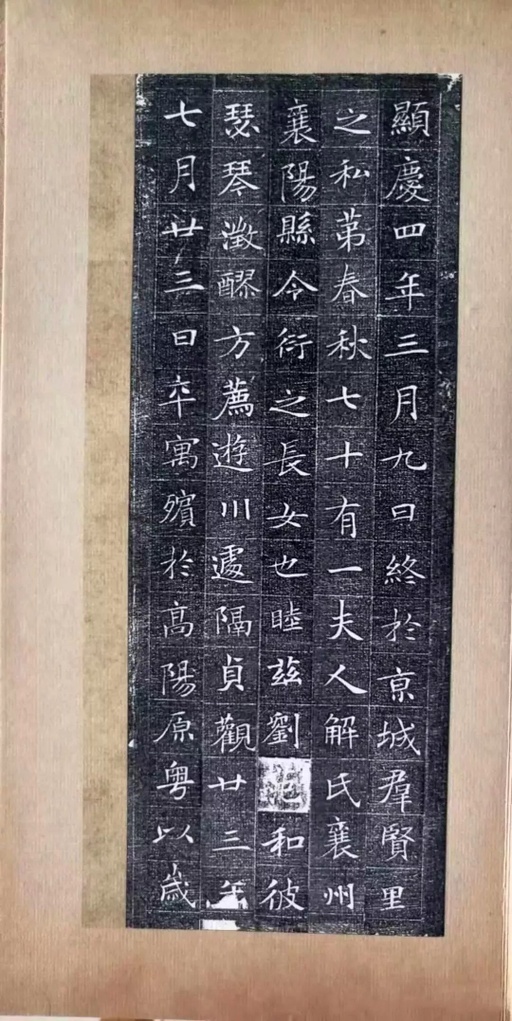 顯慶四年三月九日終於京城羣賢里
之私第春秋七十有一夫人解氏襄州
襄陽縣令衍之長女也睦茲劉范和彼
瑟琴澂醪方薦遊川遽隔貞觀廿三年
七月廿三日卒寓殯於高陽原粵以歲